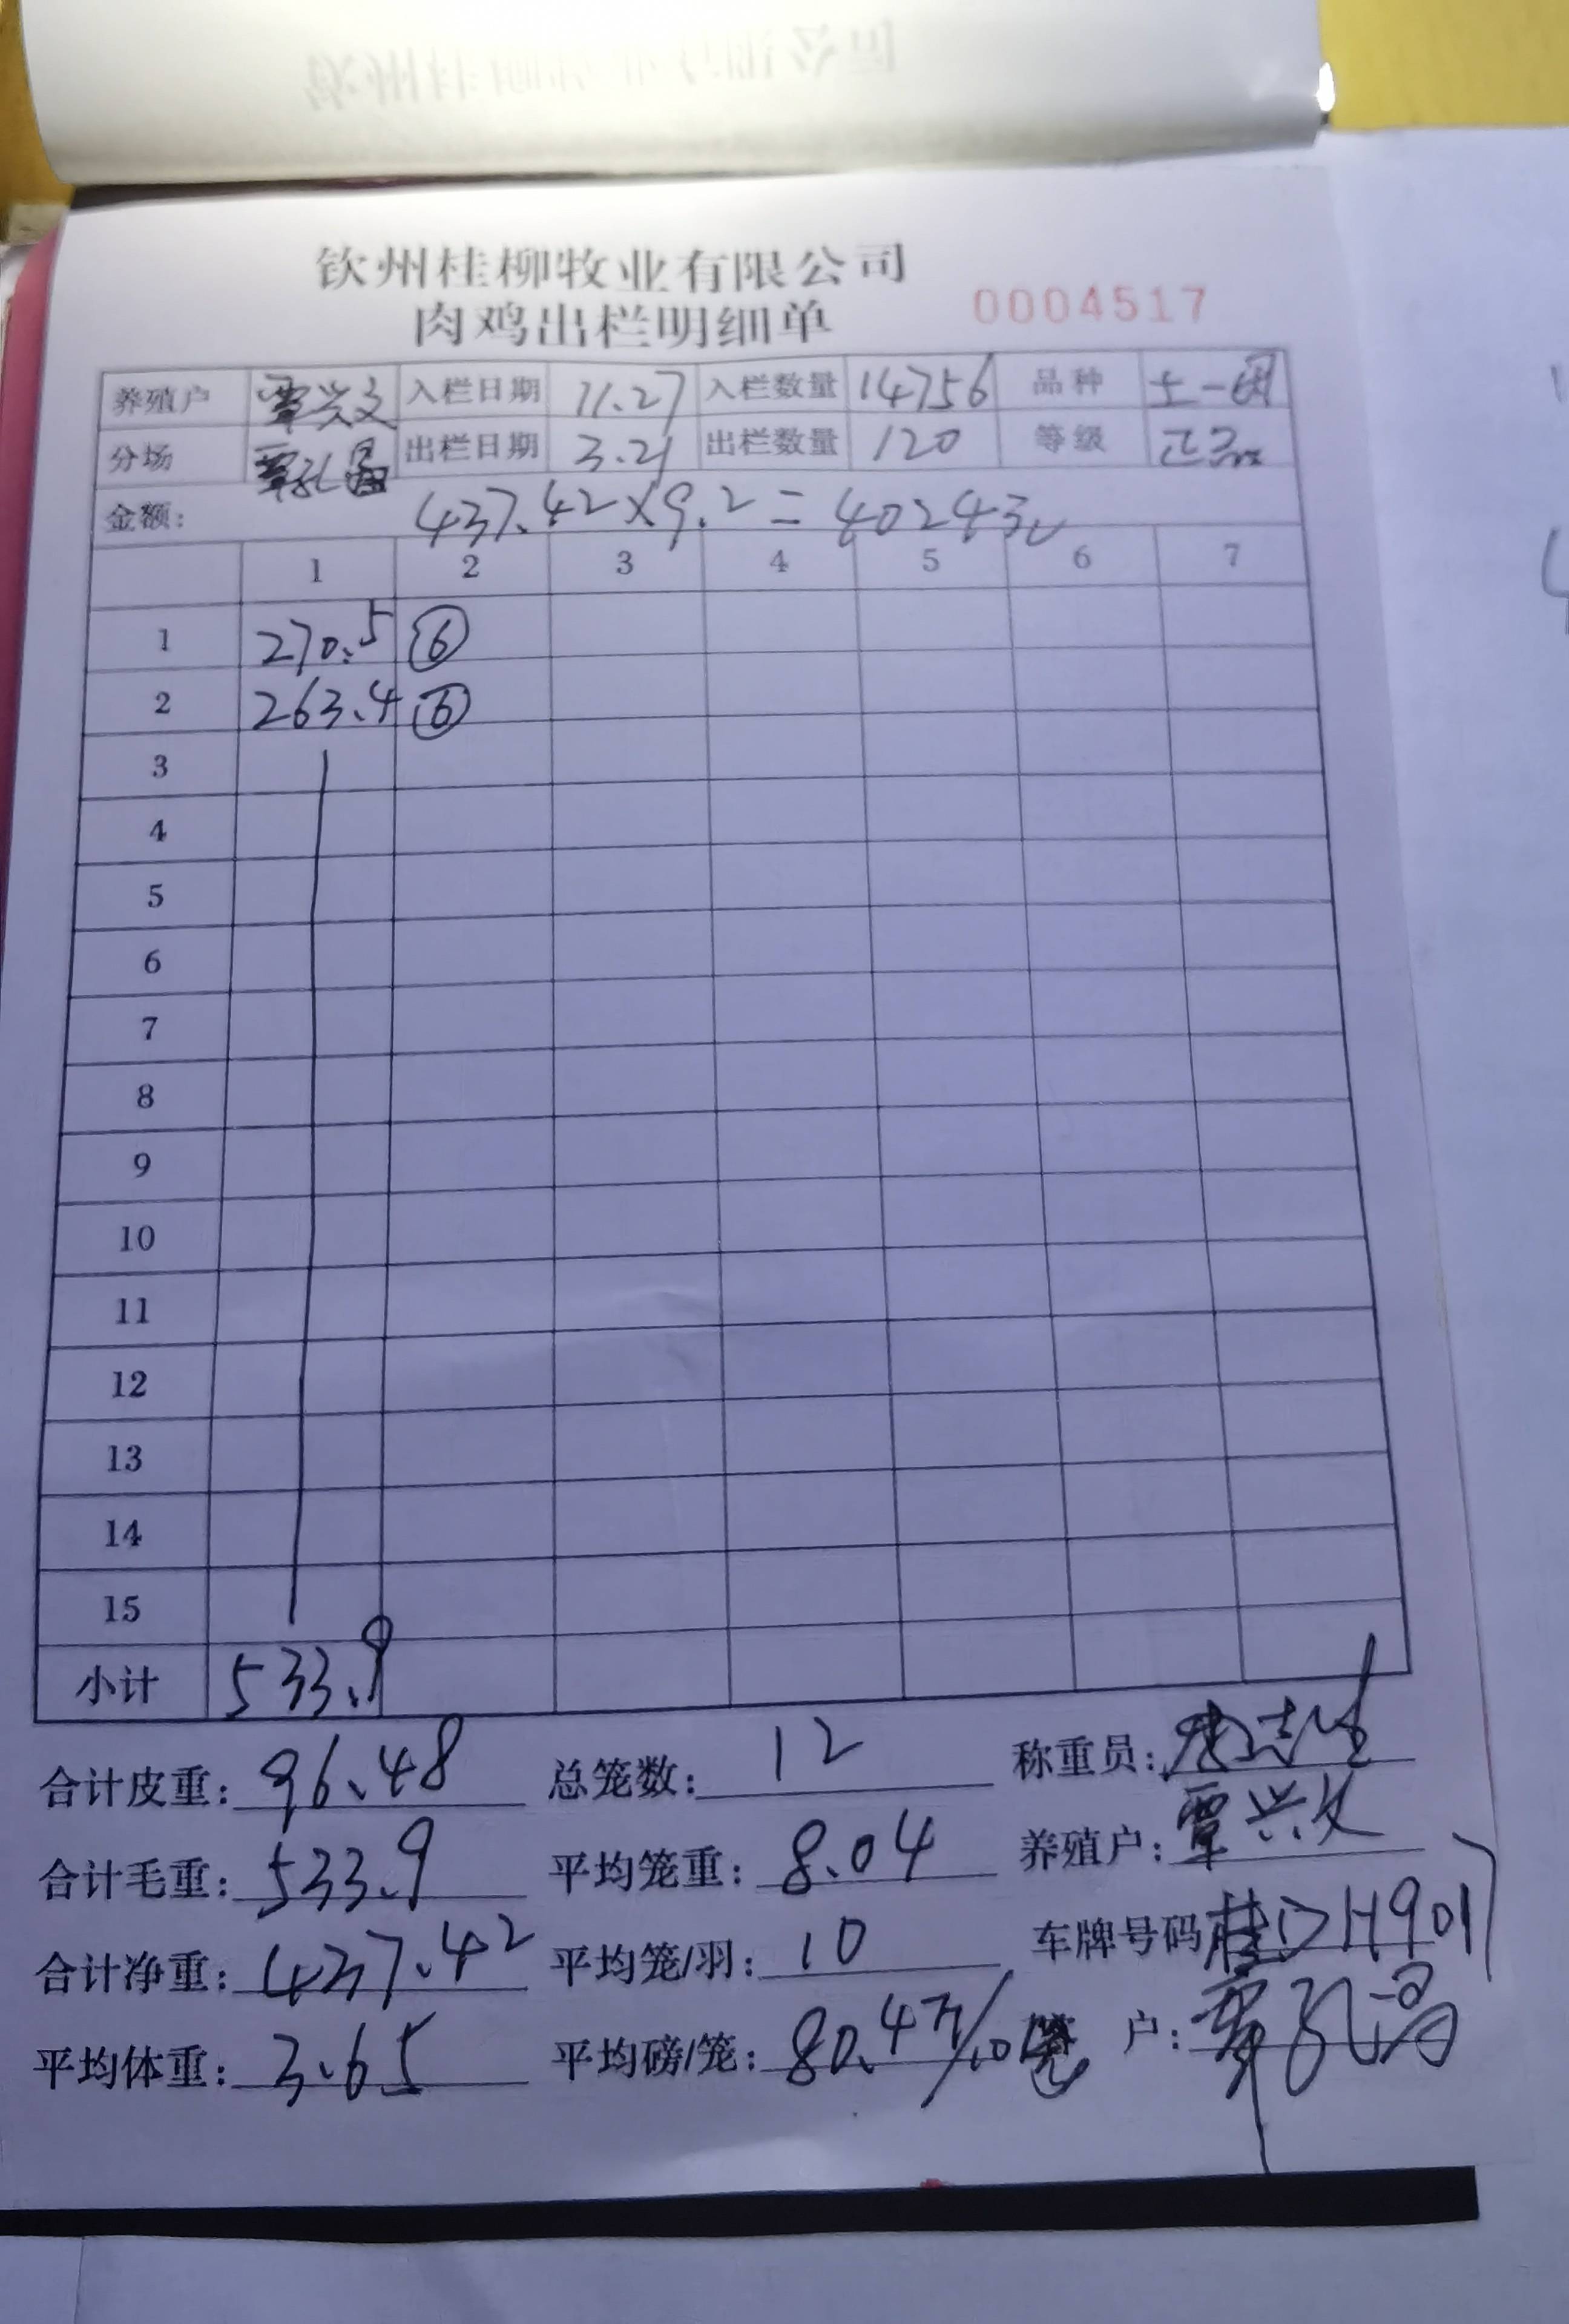 钦州桂柳牧业有限公司
肉鸡出栏明细单 0004517
养殖户 覃兴文 入栏日期 11.27 入栏数量 14756 品种 土一
分场 覃孔 出栏日期 3.21 出栏数量 120 等级 正品
金额: 437.42×9.2=40243
1 2 3 4 5 6 7
1 270.5 ⑥
2 263.4 ⑥
3
4
5
6
7
8
9
10
11
12
13
14
15
小计 533.9
合计皮重: 96.48 总笼数: 12 称重员:
合计毛重: 533.9 平均笼重: 8.04 养殖户: 覃兴文
合计净重: 437.42 平均笼/羽: 10 车牌号码 桂D H9017
平均体重: 3.65 平均磅/笼: 80.4 户: 覃孔